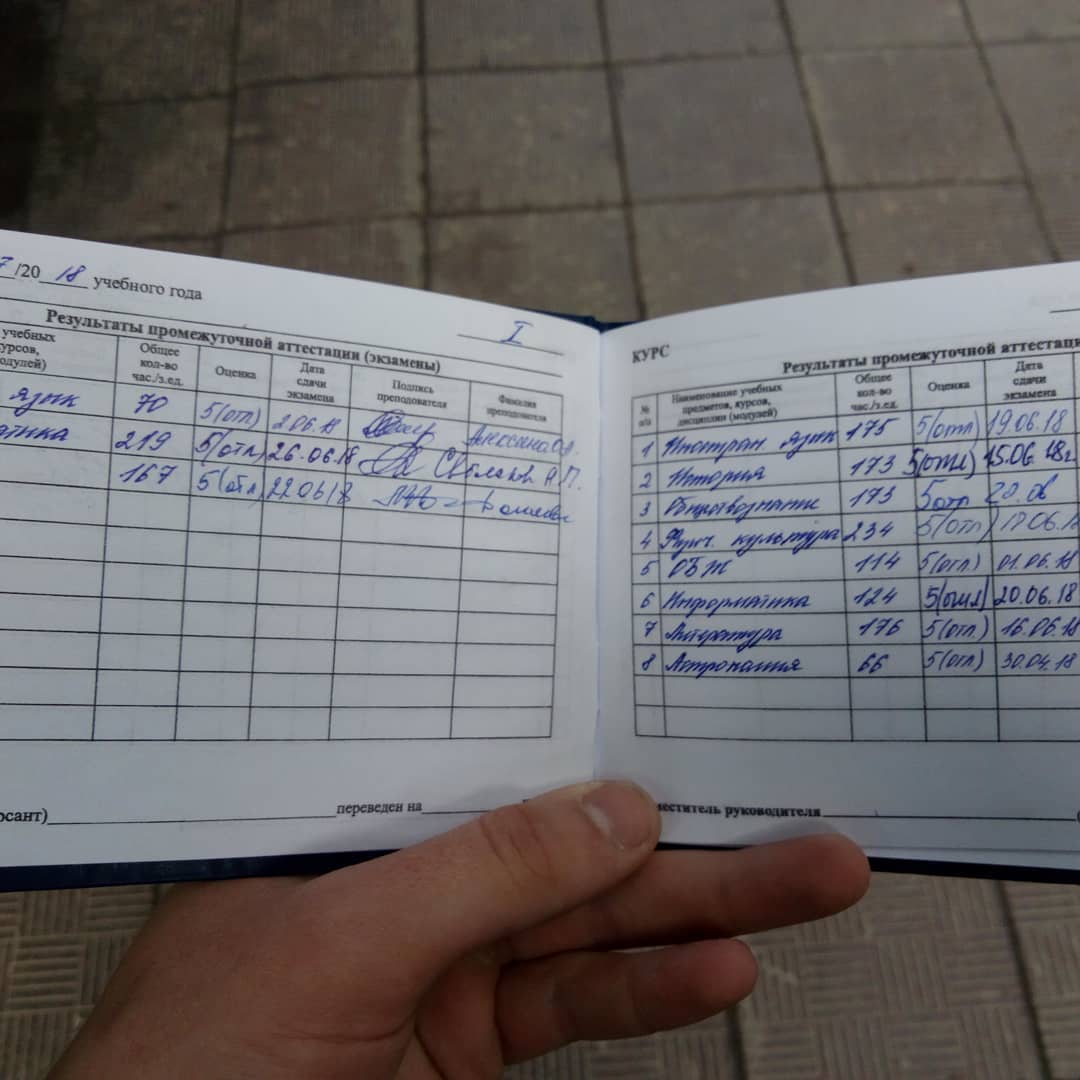 7/20 18 учебного года
Результаты промежуточной аттестации (экзамены)
I
учебных
курсов,
модулей)
Общее
кол-во
час./з.ед.
Оценка
Дата
сдачи
экзамена
Подпись
преподавателя
Фамилия
преподавателя
язык 70 5(отл) 2.06.18
219 5(отл) 26.06.18 А.П.
167 5(отл) 220618
переведен на
КУРС
Результаты промежуточной аттестаци
№
п/п
Наименование учебных
предметов, курсов,
дисциплин (модулей)
Общее
кол-во
час./з.ед.
Оценка
Дата
сдачи
экзамена
1 Иностран. язык 175 5(отл) 19.06.18
2 История 173 5(отл) 15.06.18г.
3 Обществознание 173 5отл 20.06
4 Физич. культура 234 5(отл) 17.06.18
5 ОБЖ 114 5(отл) 01.06.18
6 Информатика 124 5(отл) 20.06.18
7 Литература 176 5(отл.) 16.06.18
8 Астрономия 66 5(отл) 30.04.18
меститель руководителя